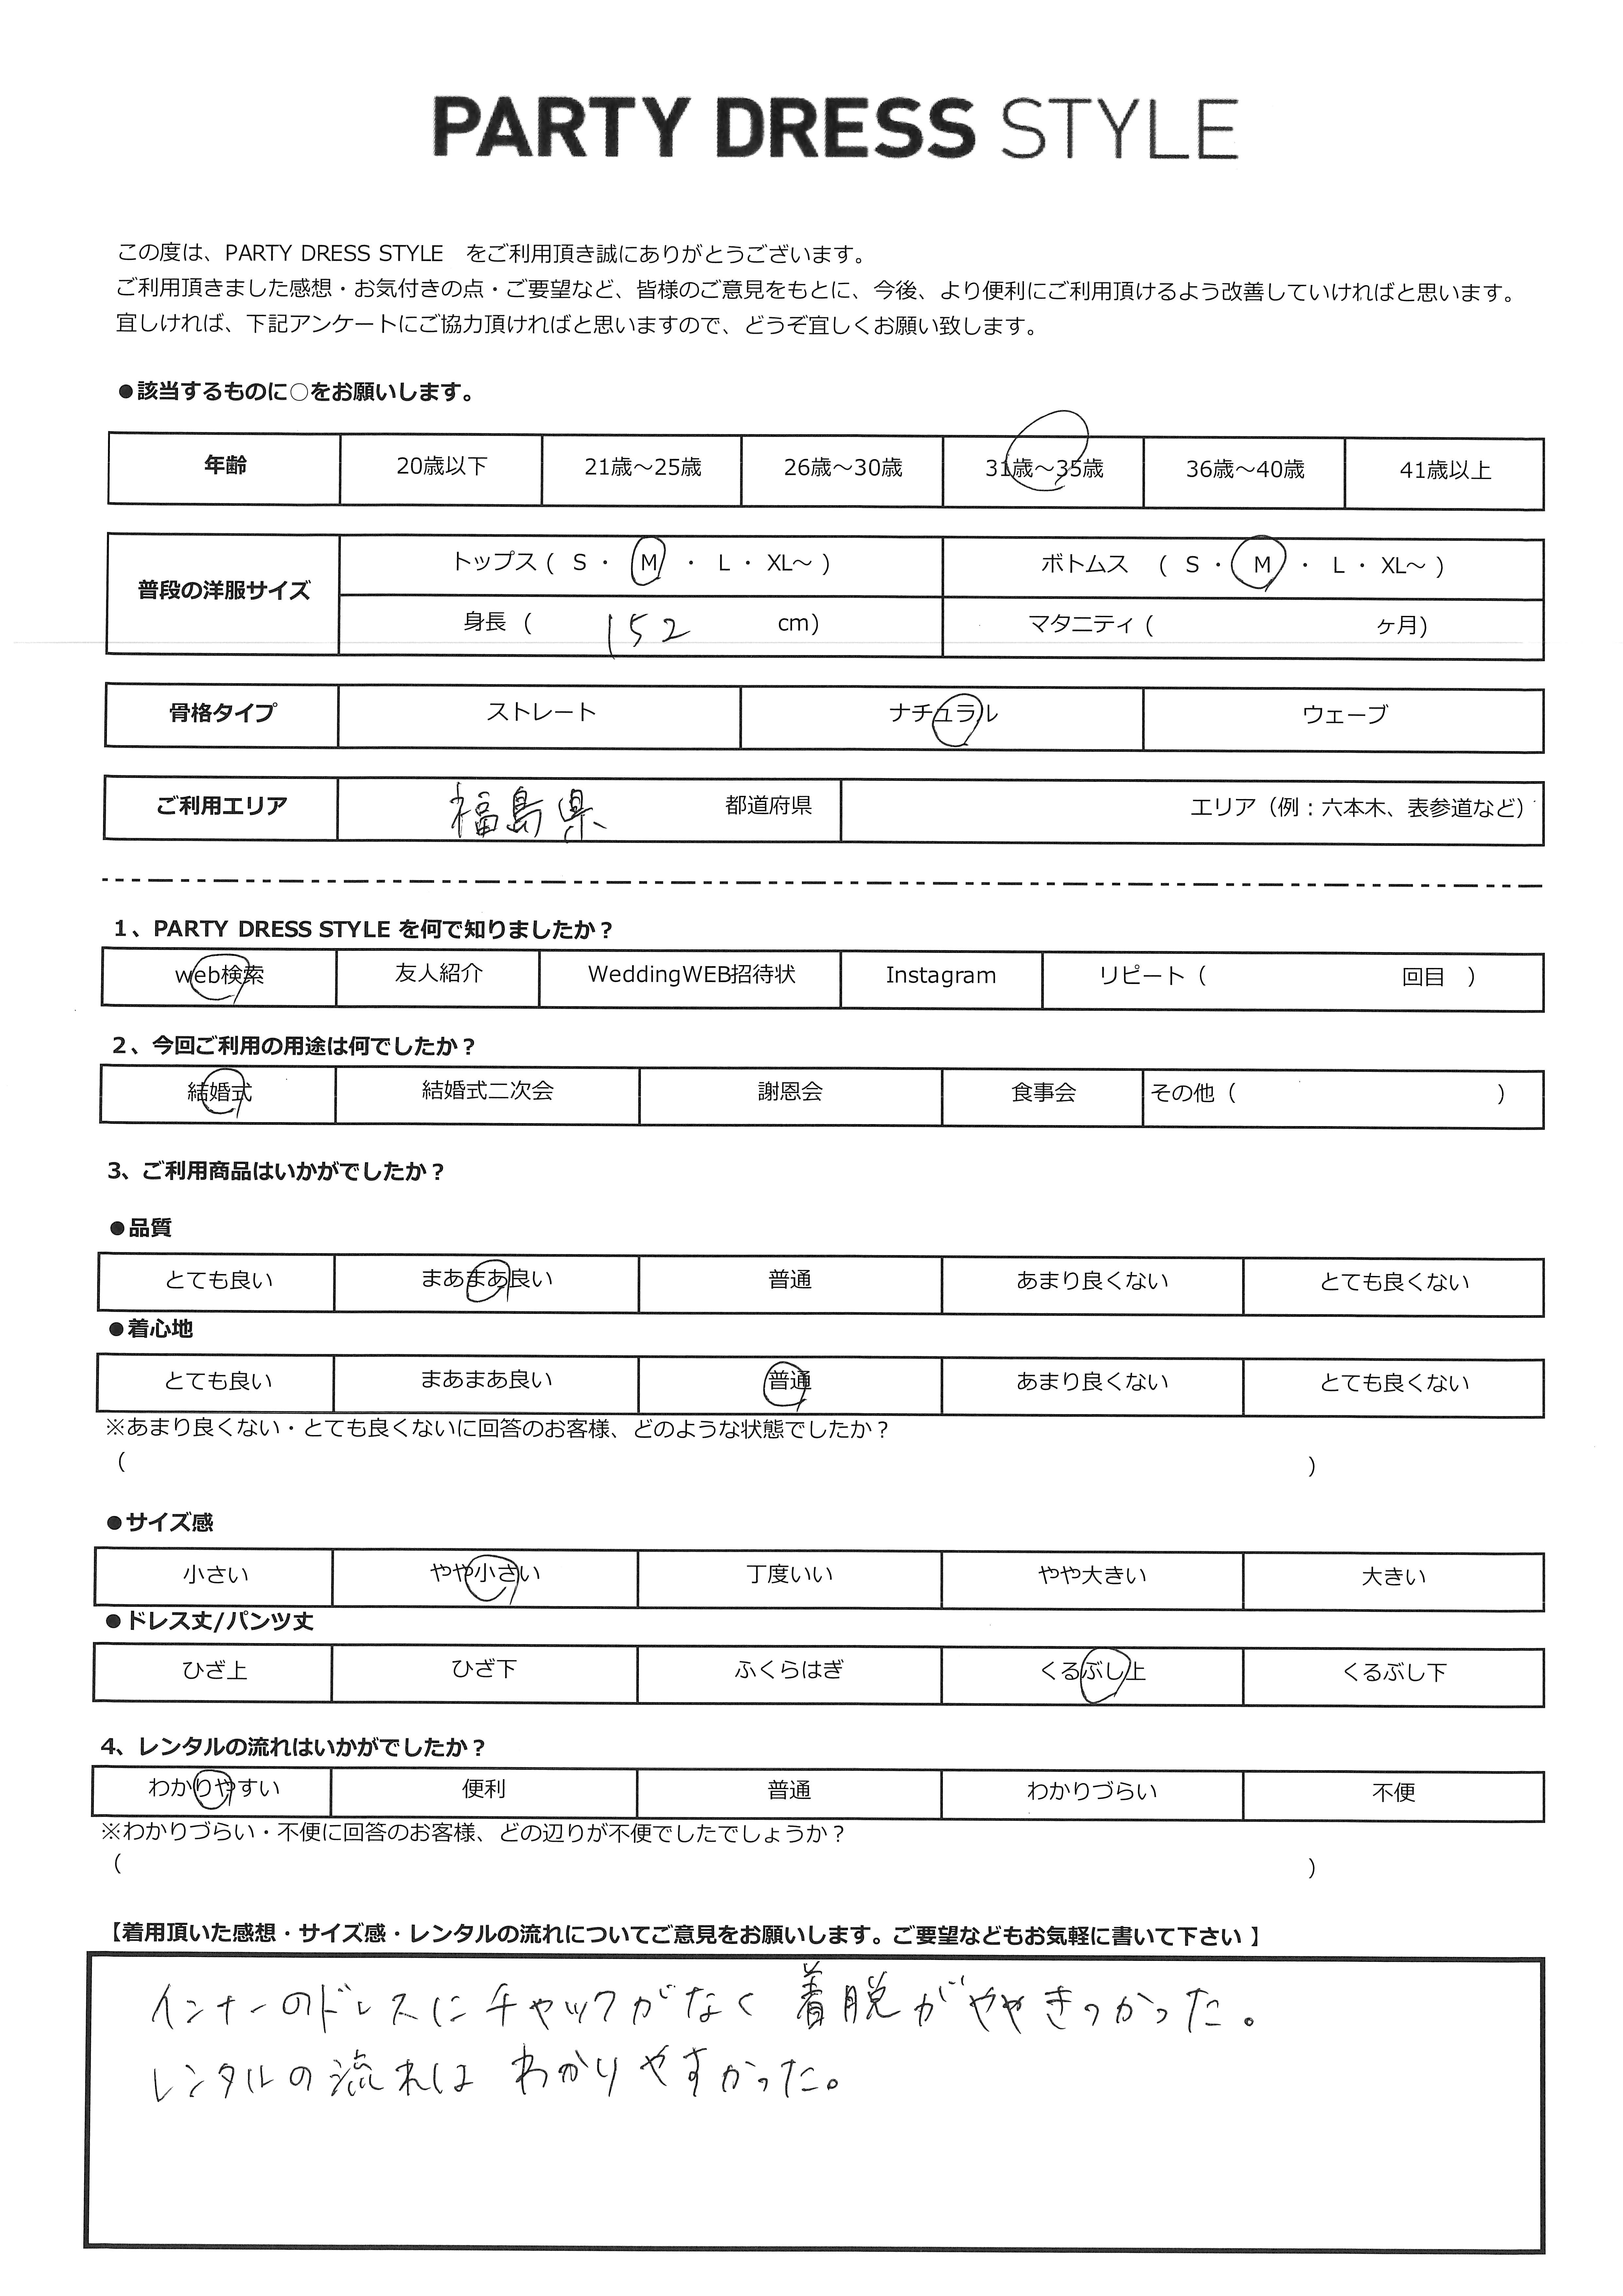 PARTY DRESS STYLE
この度は、PARTY DRESS STYLE　をご利用頂き誠にありがとうございます。
ご利用頂きました感想・お気付きの点・ご要望など、皆様のご意見をもとに、今後、より便利にご利用頂けるよう改善していければと思います。
宜しければ、下記アンケートにご協力頂ければと思いますので、どうぞ宜しくお願い致します。
●該当するものに○をお願いします。
年齢 20歳以下 21歳～25歳 26歳～30歳 31歳～35歳 36歳～40歳 41歳以上
普段の洋服サイズ
トップス ( S ・ M ・ L ・ XL～ ) ボトムス ( S ・ M ・ L ・ XL～ )
身長 ( 152 cm) マタニティ ( ヶ月)
骨格タイプ ストレート ナチュラル ウェーブ
ご利用エリア 福島県 都道府県 エリア（例：六本木、表参道など）
1、PARTY DRESS STYLE を何で知りましたか？
web検索 友人紹介 WeddingWEB招待状 Instagram リピート（ 回目 ）
2、今回ご利用の用途は何でしたか？
結婚式 結婚式二次会 謝恩会 食事会 その他（ ）
3、ご利用商品はいかがでしたか？
●品質
とても良い まあまあ良い 普通 あまり良くない とても良くない
●着心地
とても良い まあまあ良い 普通 あまり良くない とても良くない
※あまり良くない・とても良くないに回答のお客様、どのような状態でしたか？
（ ）
●サイズ感
小さい やや小さい 丁度いい やや大きい 大きい
●ドレス丈/パンツ丈
ひざ上 ひざ下 ふくらはぎ くるぶし上 くるぶし下
4、レンタルの流れはいかがでしたか？
わかりやすい 便利 普通 わかりづらい 不便
※わかりづらい・不便に回答のお客様、どの辺りが不便でしたでしょうか？
（ ）
【着用頂いた感想・サイズ感・レンタルの流れについてご意見をお願いします。ご要望などもお気軽に書いて下さい 】
インナーのドレスにチャックがなく 着脱がややきつかった。
レンタルの流れは わかりやすかった。